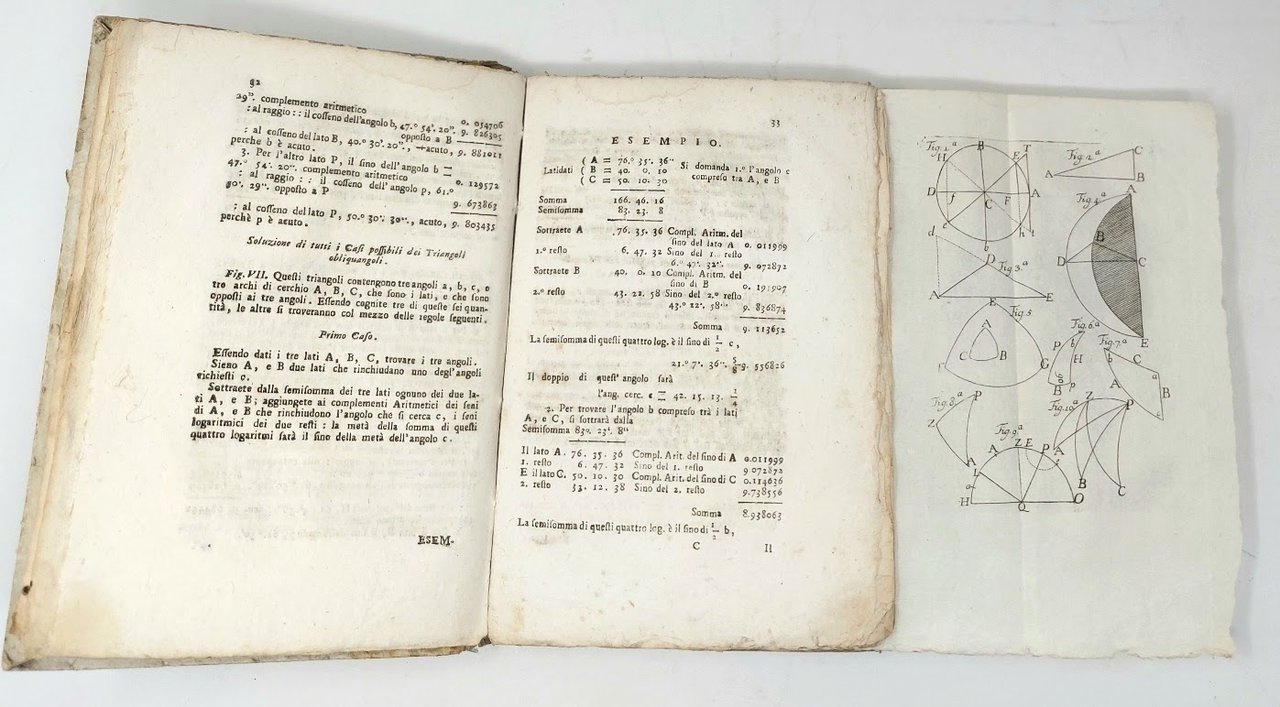 92
29''. complemento aritmetico 0. 054706
: al raggio : : il coſſeno dell'angolo b, 47.° 54'. 20''. 9. 826305
opposto a B
: al coſſeno del lato B, 40.° 30'. 20''., acuto, 9. 881011
perche b è acuto.
3. Per l'altro lato P, il ſino dell'angolo b =
47.° 54'. 20''. complemento aritmetico 0. 129572
: al raggio : : il coſſeno dell'angolo p, 61.°
50'. 29''. oppoſto a P 9. 673863
: al coſſeno del lato P, 50.° 30'. 30''., acuto, 9. 803435
perchè p è acuto.
Soluzione di tutti i Caſi poſſibili dei Triangoli
obliquangoli.
Fig. VII. Queſti triangoli contengono tre angoli a, b, c, e
tre archi di cerchio A, B, C, che ſono i lati, e che ſono
oppoſti ai tre angoli. Eſſendo cognite tre di queſte ſei quan-
tità, le altre ſi troveranno col mezzo delle regole ſeguenti.
Primo Caſo.
Eſſendo dati i tre lati A, B, C, trovare i tre angoli.
Sieno A, e B due lati che rinchiudano uno degl'angoli
richieſti c.
Sottraete dalla semiſomma dei tre lati ognuno dei due la-
ti A, e B; aggiungete ai complementi Aritmetici dei ſeni
di A, e B che rinchiudono l'angolo che ſi cerca c, i ſeni
logaritmici dei due reſti: la metà della ſomma di queſti
quattro logaritmi ſarà il ſino della metà dell'angolo c.
ESEM-
33
ESEMPIO.
( A = 76.° 35'. 36'' Si domanda 1.° l'angolo c
Latidati ( B = 40. 0. 10 compreſo tra A, e B
( C = 50. 10. 30
Somma 166. 46. 16
Semiſomma 83. 23. 8
Sottraete A 76. 35. 36 Compl. Aritm. del
ſino del lato A 0. 011999
1.° reſto 6. 47. 32 Sino del 1. reſto
6.° 47'. 32''. 9. 072872
Sottraete B 40. 0. 10 Compl. Aritm. del
ſino di B 0. 191907
2.° reſto 43. 22. 58 Sino del 2.° reſto
43.° 22'. 58'' 9. 836874
Somma 9. 113652
La ſemiſomma di queſti quattro log. è il ſino di 1/2 c,
21.° 7'. 36''. 5/8 9. 556826
Il doppio di queſt'angolo ſarà
l'ang. cerc. c = 42. 15. 13. 1/4
2. Per trovare l'angolo b compreſo trà i lati
A, e C, ſi ſottrarà dalla
Semiſomma 83°. 23'. 8''
Il lato A. 76. 35. 36 Compl. Arit. del ſino di A 0.011999
1. reſto 6. 47. 32 Sino del 1. reſto 9 072872
E il lato C. 50. 10. 30 Compl. Arit. del ſino di C 0.114636
2. reſto 33. 12. 38 Sino del 2. reſto 9.738556
Somma 8.938063
La ſemiſomma di queſti quattro log. è il ſino di 1/2 b,
C Il
Fig. 1.a
B
H
E
T
D
f
A
C
F
e
b
h
t
Fig. 2.a
C
A
B
Fig. 3.a
d
D
A
E
Fig. 4.a
A
B
D
C
E
Fig. 5.
E
A
C
B
G
Fig. 6.a
P
b
H
B
p
Fig. 7.a
b
C
a
A
B
c
Fig. 8.a
P
Z
A
Fig. 9.a
Z E
A
P
H
Q
O
Fig. 10.a
Z
P
A
B
C